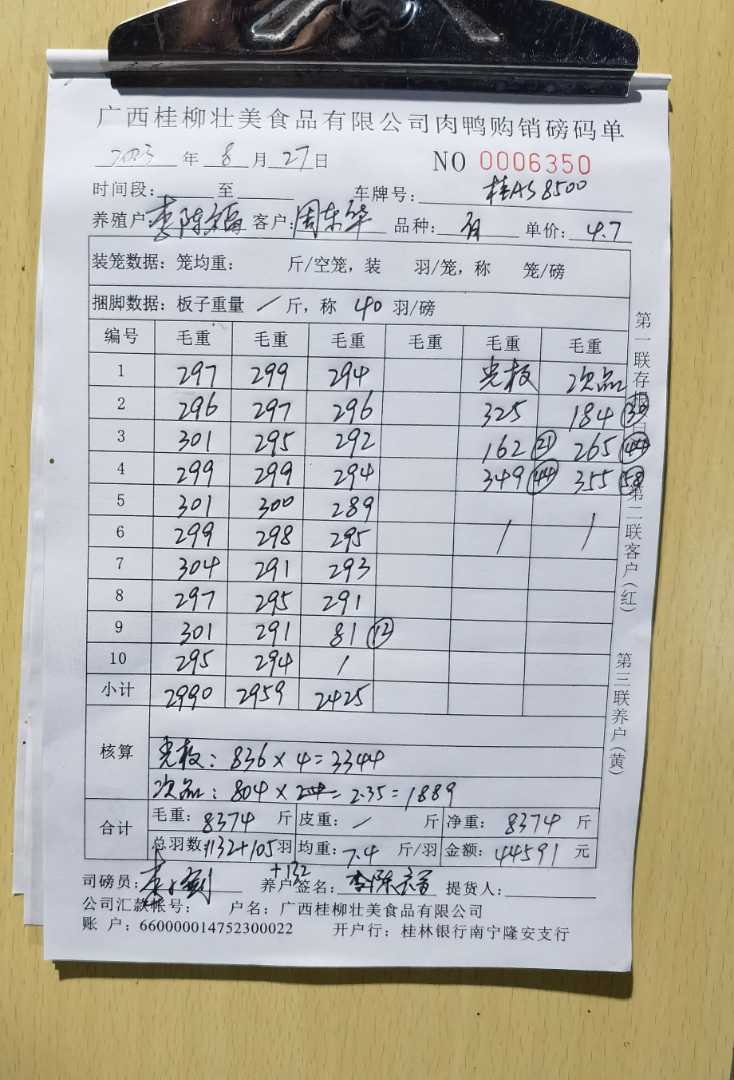 广西桂柳壮美食品有限公司肉鸭购销磅码单
2023 年 8 月 27 日 NO 0006350
时间段: 至 车牌号: 桂AS8500
养殖户 李陈福 客户: 周东华 品种: 单价: 4.7
装笼数据: 笼均重: 斤/空笼，装 羽/笼，称 笼/磅
捆脚数据: 板子重量 / 斤，称 40 羽/磅
编号 毛重 毛重 毛重 毛重 毛重 毛重
1 297 299 294 光板 次品
2 296 297 296 325 184 (30)
3 301 295 292 162 (21) 265 (44)
4 299 299 294 349 (44) 355 (58)
5 301 300 289
6 299 298 295 / /
7 304 291 293
8 297 295 291
9 301 291 81 (12)
10 295 294 /
小计 2990 2959 2425
核算
光板: 836 × 4 = 3344
次品: 804 × 2.35 = 1889
合计
毛重: 8374 斤 皮重: / 斤 净重: 8374 斤
总羽数 1132+105 羽 均重: 7.4 斤/羽 金额: 44591 元
+132
司磅员: 养户签名: 提货人:
公司汇款帐号: 户名: 广西桂柳壮美食品有限公司
账 户: 660000014752300022 开户行: 桂林银行南宁隆安支行
第一联存根
第二联客户(红)
第三联养户(黄)